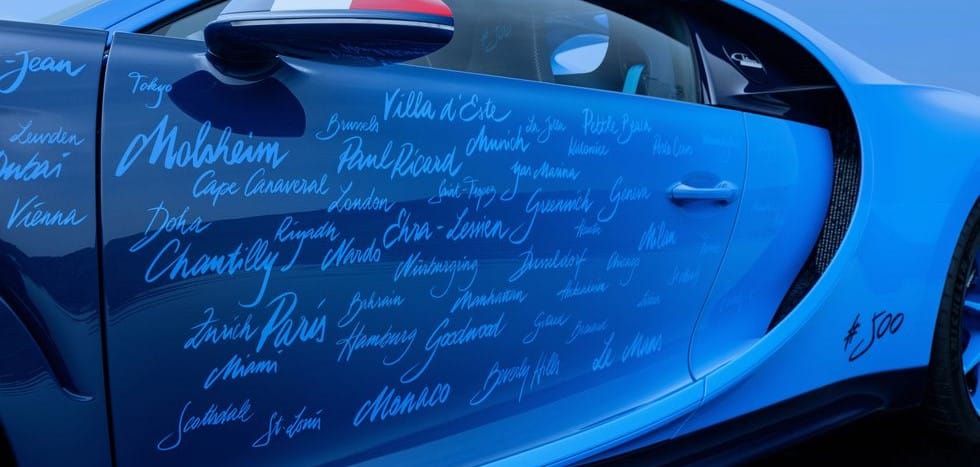 #500
-Jean
Tokyo
Villa d'Este
Leuvden
Brussels
Munich
La Joia
Pebble Beach
Dubai
Molsheim
Paul Ricard
Katowice
Cape Canaveral
Yas Marina
Vienna
London
Saint-Tropez
Greenwich
Geneva
Doha
Riyadh
Ehra-Lessien
Milan
Chantilly
Nardo
Nürburgring
Dusseldorf
Chicago
Zürich
Paris
Bahrain
Manhattan
#500
Hamburg
Goodwood
Miami
Le Mans
Beverly Hills
Monaco
Scottsdale
St. Louis